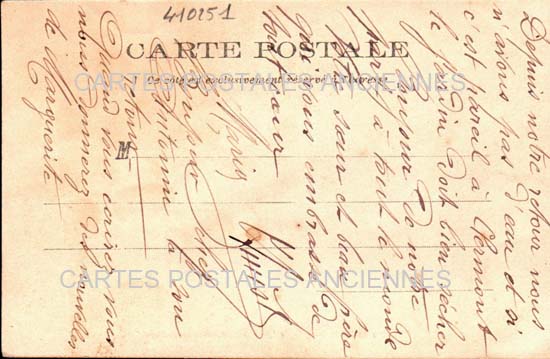 410251
CARTE POSTALE
Ce côté est exclusivement réservé à l'adresse
M
CARTES POSTALES ANCIENNES
CARTES POSTALES ANCIENNES
Depuis notre retour nous
n'avons pas d'eau et si
c'est pareil à Clermont
le jardin doit bien sécher
Bonjour de notre
part à tout le monde
Votre sœur et beau frère
qui vous embrasse de
tout cœur
Marie
Antonine
Quand vous écrirez vous
nous donnerez des nouvelles
de Marguerite